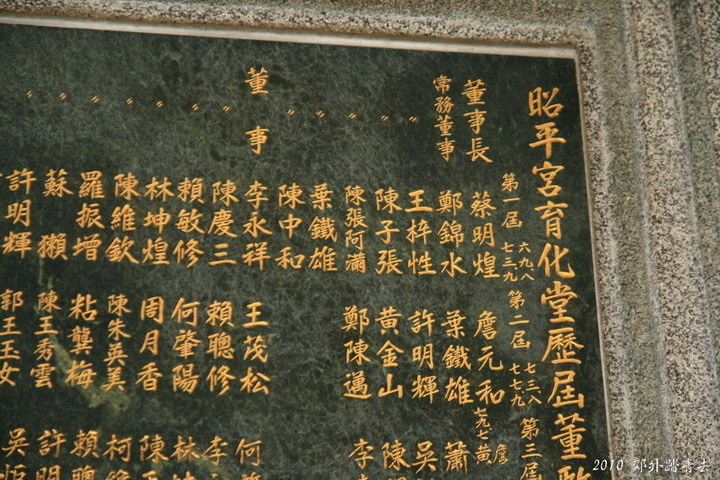 昭平宮育化堂歷屆董
第一屆 六九八 七三九 第二屆 七三八 七七九 第三屆
董事長 蔡明煌 詹元和 七九七 詹 黃
常務董事 鄭錦水 葉鐵雄 蕭
〃 王梓性 許明輝 吳
〃 陳子張 黃金山 陳
〃 陳張阿滿 鄭陳邁 李
〃 葉鐵雄
〃 陳中和
董事 李永祥 王茂松 何
〃 陳慶三 賴聰修 李
〃 賴敏修 何肇陽 林
〃 林坤煌 周月香 陳
〃 陳維欽 陳朱英美 柯
〃 羅振增 粘龔梅 賴聰
〃 蘇獺 陳王秀雲 許明
〃 許明輝 郭王玉女 吳炬
2010 郊外踏青去